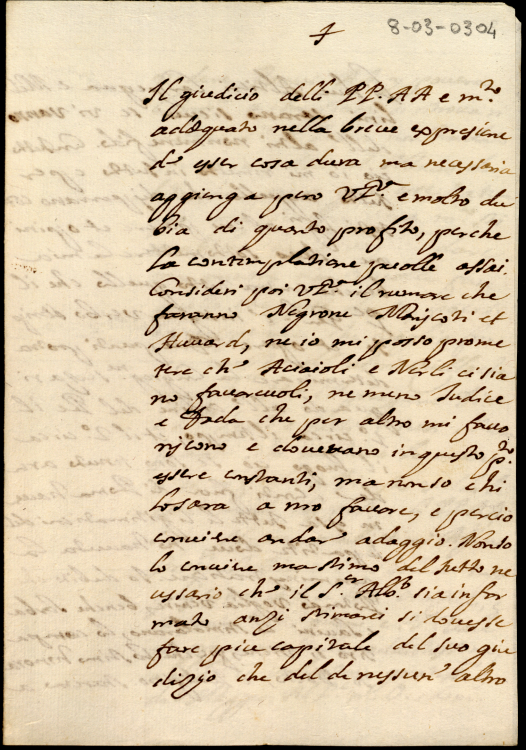 8-03-0304
Il giudicio delli PP. AA e m.to
adequato nella breve expresione
d' esser cosa dura ma necessaria
aggiunga pero VP. e molto du
bia di quanto profito, perche
la contemplatione puolle assai.
Consideri poi VP. il rumore che
faranno Negrone Mariscoti et
Huuard, ne io mi posso prome
tere ch' Aciaioli e Nerli ci sia
no favorevoli, ne meno Judice
e Fada che per altro mi favo
riscono e dovevano in questo p.to
essere constanti, ma non so chi
lo sara a mio favore, e percio
conviene andar adaggio. Non so
lo conviene ma stimo del tutto ne
cessario ch' il S.r Alb.o sia infor
mato anzi stimarei si dovesse
fare piu capitale del suo giu
dizio che del di nessun' altro